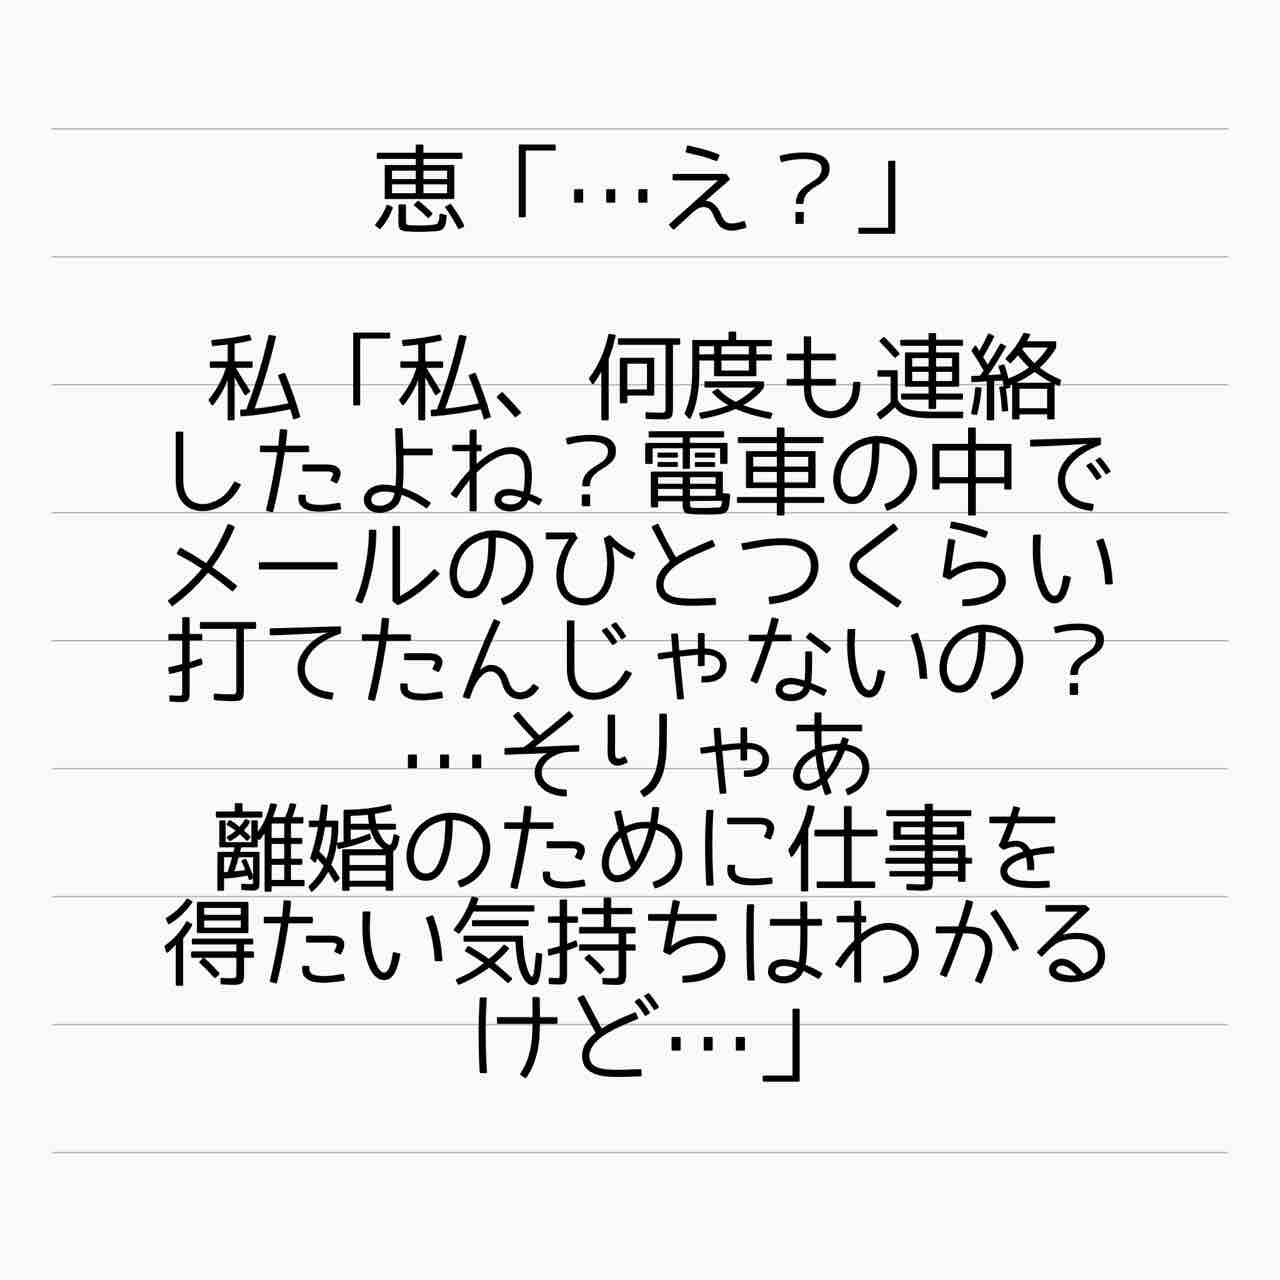 恵「…え？」
私「私、何度も連絡
したよね？電車の中で
メールのひとつくらい
打てたんじゃないの？
…そりゃあ
離婚のために仕事を
得たい気持ちはわかる
けど…」